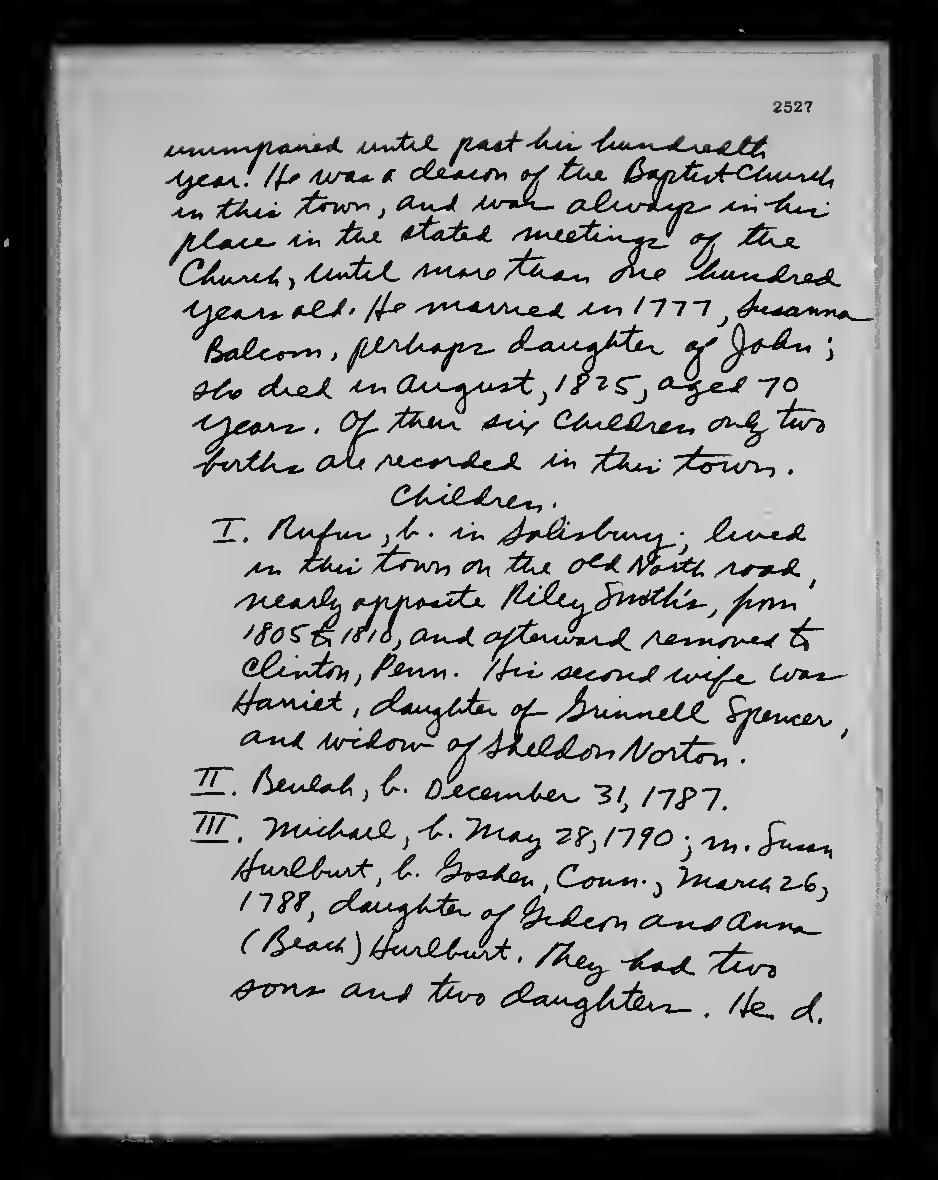 2527
unimpaired until past his hundredth
year. He was a deacon of the Baptist Church
in this town, and was always in his
place in the stated meetings of the
Church, until more than one hundred
years old. He married in 1777, Susanna
Balcom, perhaps daughter of John;
she died in August, 1825, aged 70
years. Of their six Children only two
births are recorded in this town.
Children.
I. Rufus, b. in Salisbury; lived
in this town on the old North road,
nearly opposite Riley Smith's, from
1805 to 1810, and afterward removed to
Clinton, Penn. His second wife was
Harriet, daughter of Grinnell Spencer,
and widow of Sheldon Norton.
II. Beulah, b. December 31, 1787.
III. Michael, b. May 28, 1790; m. Susan
Hurlburt, b. Goshen, Conn., March 26,
1788, daughter of Gideon and Anna
(Beach) Hurlburt. They had two
sons and two daughters. He d.